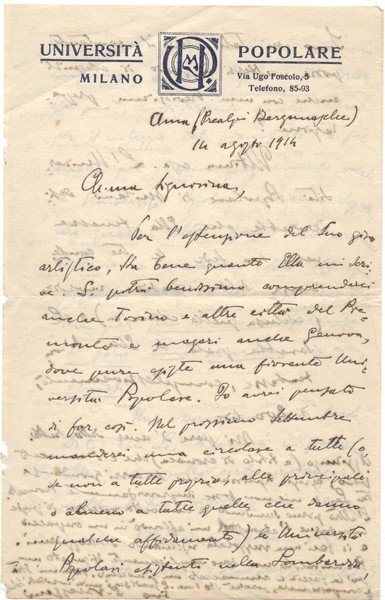 UNIVERSITÀ POPOLARE
MILANO
Via Ugo Foscolo, 5
Telefono, 85-93
(Prealpi Bergamasche)
14 agosto 1914
Ch.ma Signorina,
Per l'estensione del Suo giro
artistico, sta bene quanto Ella mi scri-
ve. Si potrà benissimo comprendervi
anche Torino e altre città del Pie-
monte e magari anche Genova,
dove pure esiste una fiorente Uni-
versità Popolare. Io avrei pensato
di far così. Nel prossimo settembre
manderei una circolare a tutte (o
se non a tutte proprio, alle principali
o almeno a tutte quelle che danno
qualche affidamento) le Università
Popolari esistenti nella Lombardia,